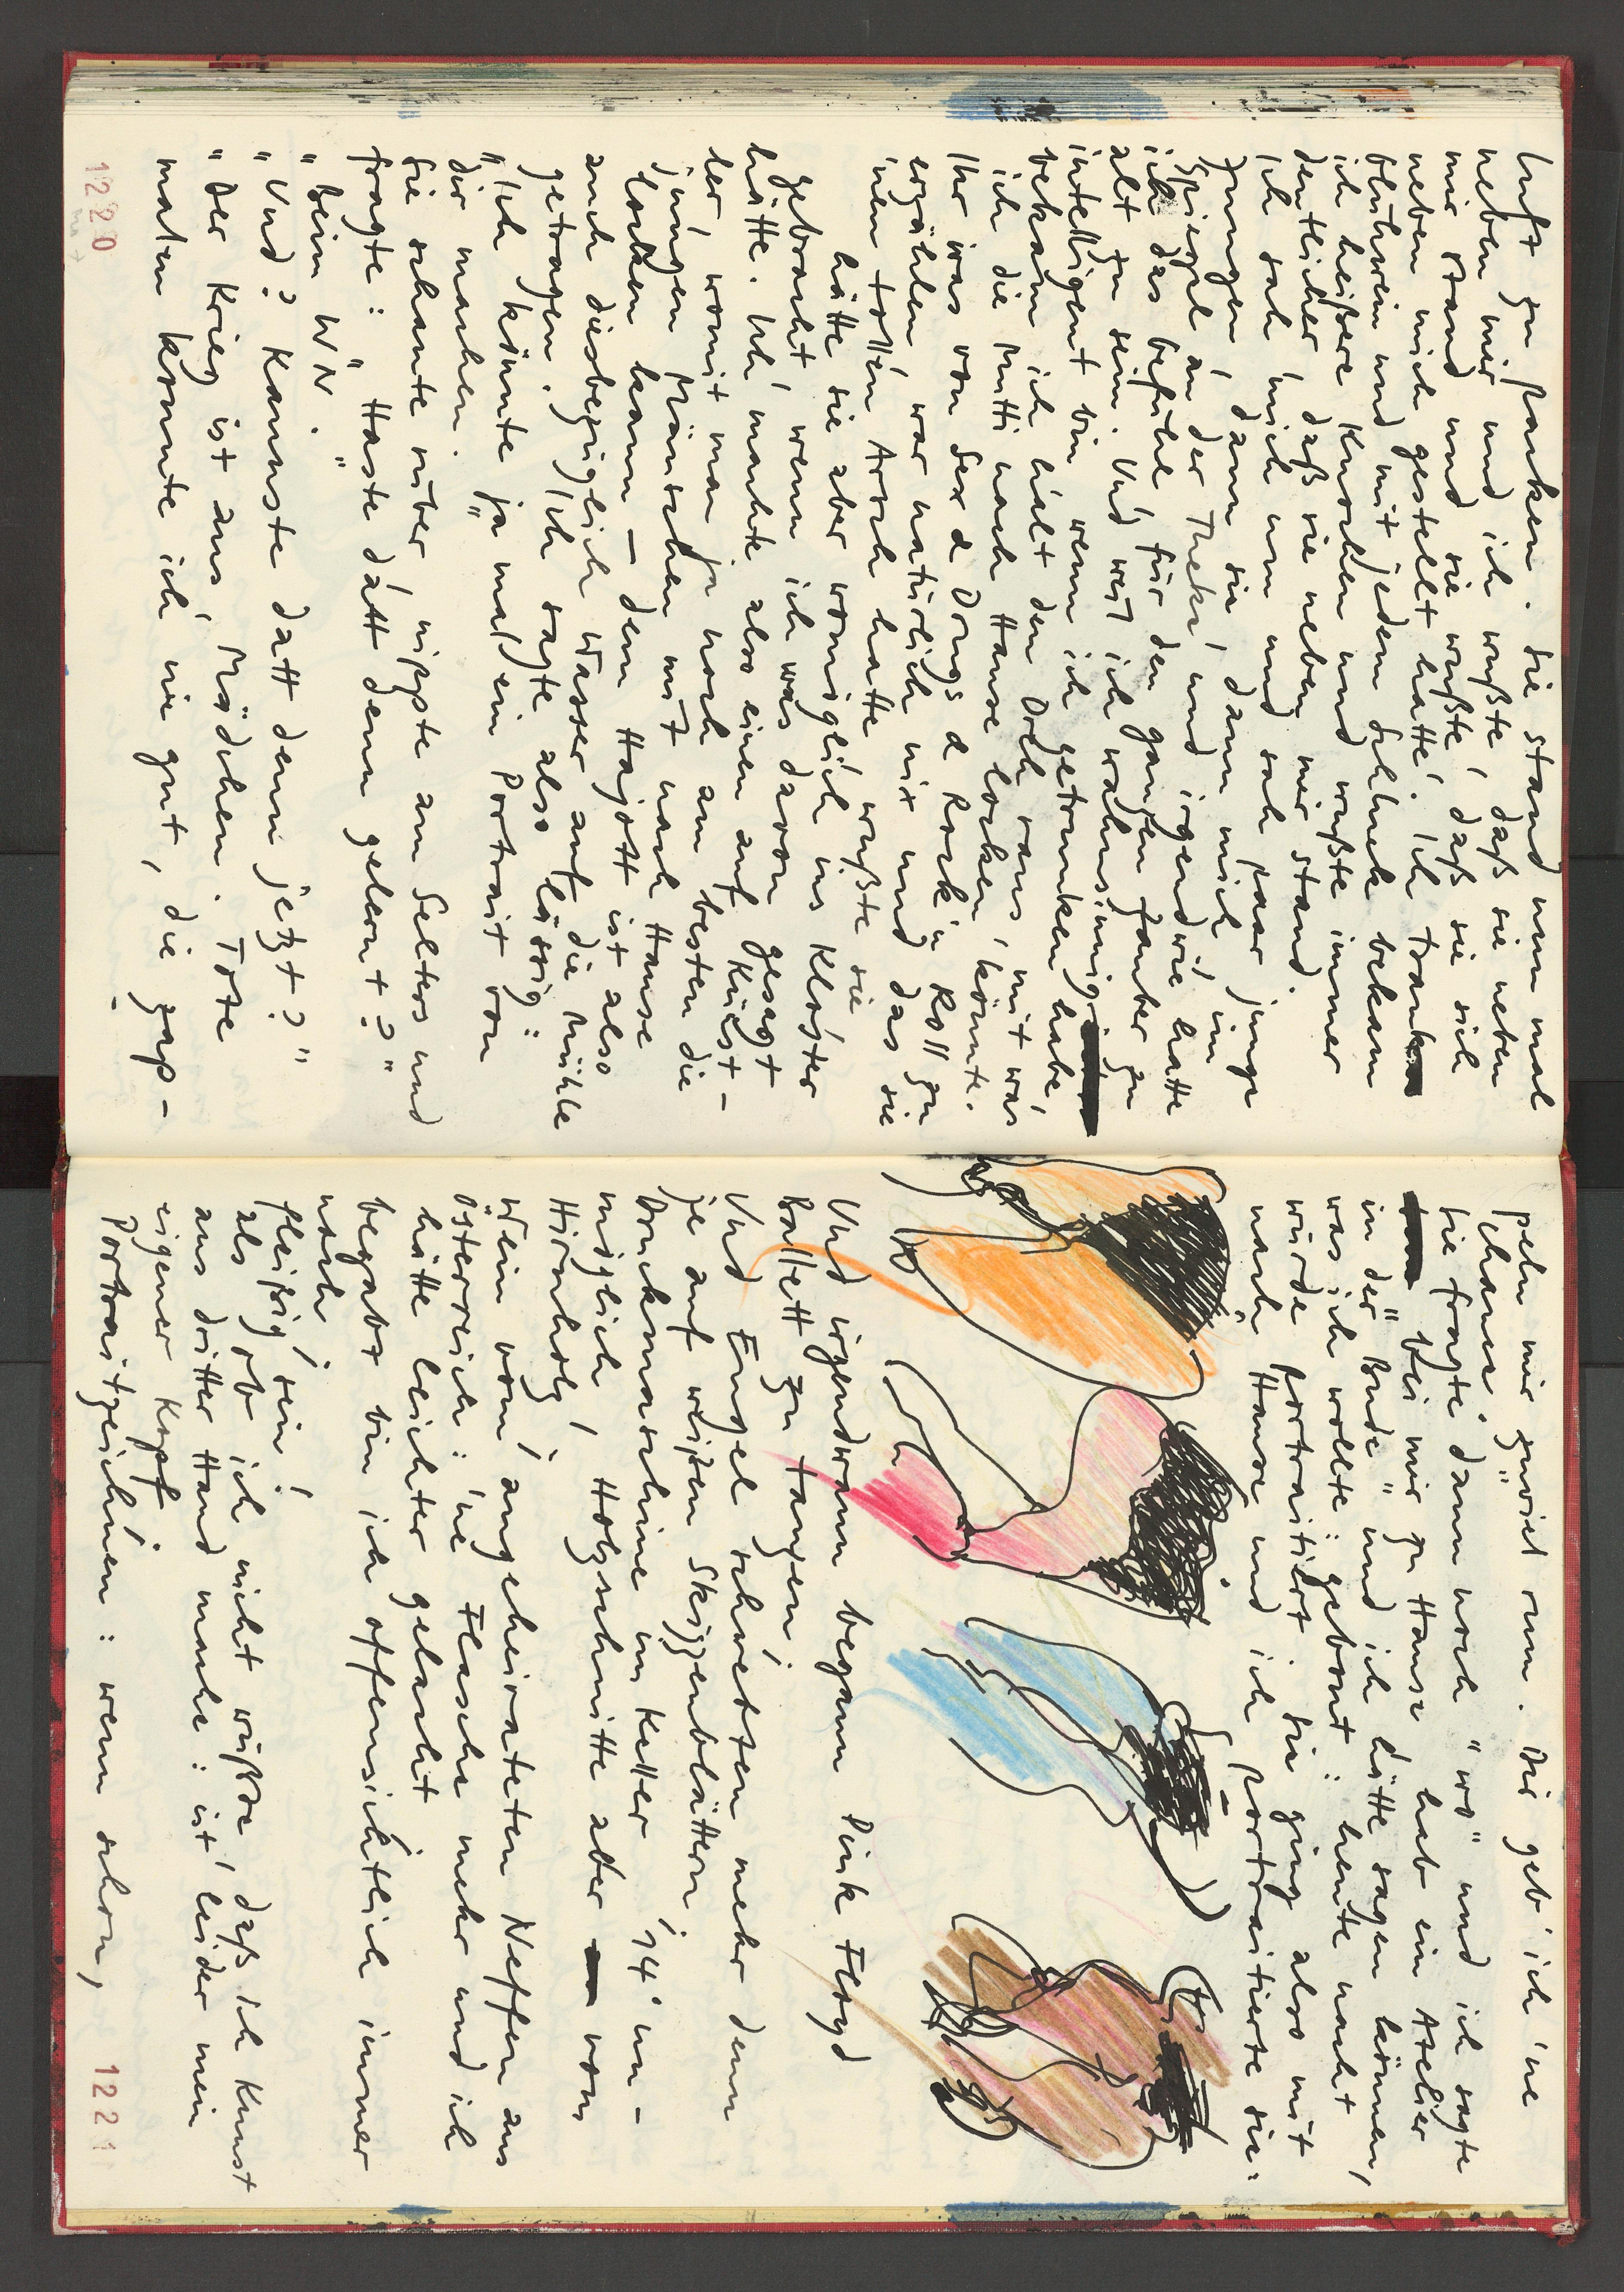 Luft zu parken. Sie stand nun mal
neben mir und ich wußte, daß sie neben
mir stand und sie wußte, daß sie sich
neben mich gestellt hatte. Ich trank
Glühwein und mit jedem Schluck bekam
ich heißere Knochen und wußte immer
deutlicher, daß sie neben mir stand.
Ich sah mich um und sah paar junge
Zungen, dann sie, dann mich im
Spiegel an der Theke, und irgendwie hatte
ich das Gefühl, für den ganzen Zauber zu
alt zu sein. Und weil ich wahnsinnig
intelligent bin wenn ich getrunken habe,
bekam ich halt den Dreh raus, mit was
ich die Mutti nach Hause locken könnte.
Ihr was von Sex & Drugs & Rock'n Roll zu
erzählen war natürlich nix und das sie
'nen tollen Arsch hatte wußte sie
hätte sie aber womöglich ins Kloster
gebracht, wenn ich was davon gesagt
hätte. Ich machte also einen auf Künst-
ler, womit man ja noch am besten die
jungen Mäntschen mit nach Hause
locken kann – denn Hajott ist also
auch diesbezüglich Wasser auf die Mühle
getragen. Ich sagte also lässig:
"Ich könnte ja mal ein Portrait von
dir machen."
Sie schaute rüber, nippte am Selters und
fragte: "Haste datt denn gelernt?"
"Beim WN."
"Und? Kannste datt denn jetzt?"
"Der Krieg ist aus, Mädchen. Tote
malen konnte ich nie gut, die zap-
1220
peln mir zuviel rum. Dir geb' ich 'ne
Chance."
Sie fragte dann noch "wo" und ich sagte
"Bei mir zu Hause hab ein Atelier
in der "Bude" und ich hätte sagen können,
was ich wollte: gebont: heute nacht
würde portraitiert. Sie ging also mit
nach Hause und ich portraitierte sie:
Und irgendwann begann Pink Floyd
Ballett zu tanzen,
Und Engel schwebten mehr denn
je auf weißen Skizzenblättern,
Druckmaschine im Keller, 14' un-
möglich, Holzschnitte aber vom
Hirnholz,
Wein vom angeheirateten Neffen aus
Österreich: 'ne Flasche mehr und ich
hätte leichter gelacht
begabt bin ich offensichtlich immer
noch,
fleißig sein!
als ob ich nicht wüßte, daß ich Kunst
aus dritter Hand mache: ist leider mein
eigener Kopf.
Portraitzeichnen: wenn schon,
1221